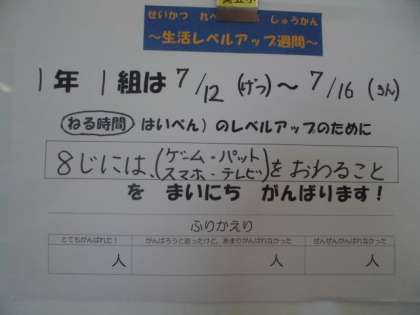 せいかつ れべ しゅうかん
～生活レベルアップ週間～
1年 1組は 7/12 (げつ) ～ 7/16 (きん)
ねる時間 はいべん) のレベルアップのために
8じには、(ゲーム・パット
スマホ・テレビ) を おわること
を まいにち がんばります！
ふりかえり
とてもがんばれた！ がんばろうと思ったけど、あまりがんばれなかった ぜんぜんがんばれなかった
人 人 人